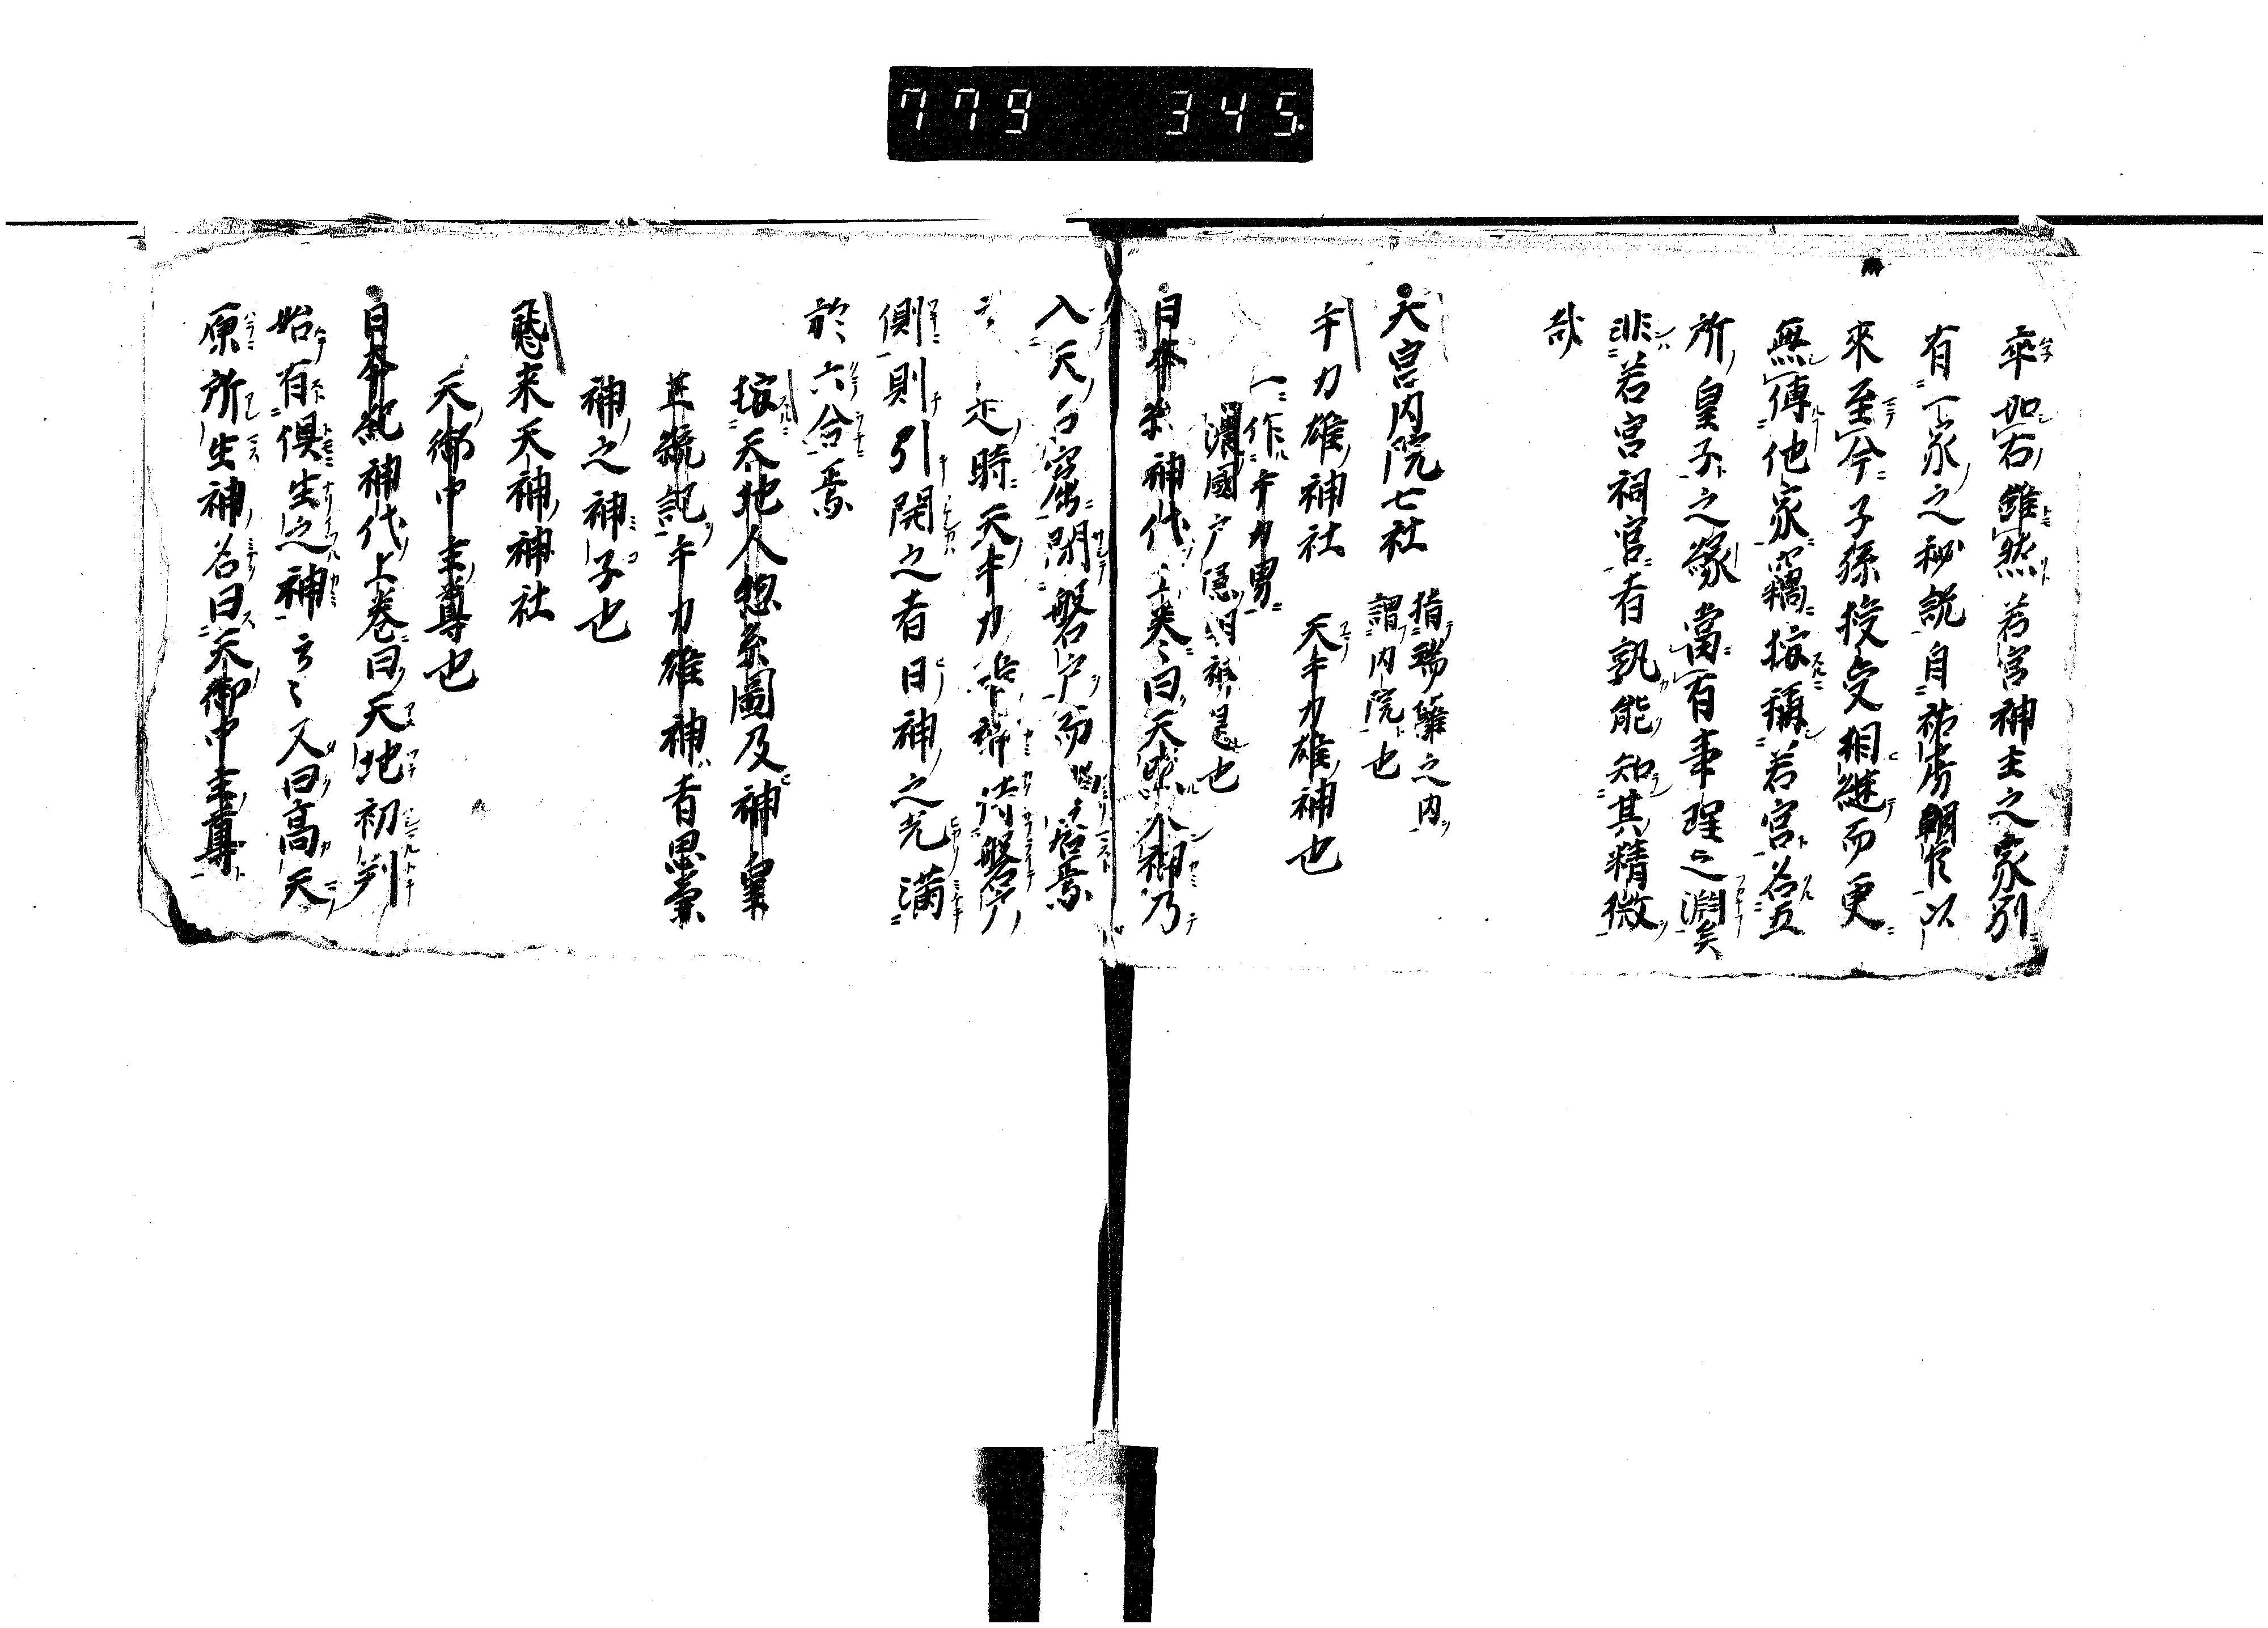 779 345.
卒如右雖然若宮神主之家別
有一家之秘説自祐房朝臣以
來至今子孫授受相継而更
無傳他家竊按稱若宮名五
所皇子之縁當有事理之淵矣
非若宮祠官者孰能知其精微
哉
大宮内院七社 指瑞籬之内
謂内院也
手力雄神社 天手力雄神也
一作手力男
濃國戸隠明神是也
日本紀神代上巻曰天照大神乃
入天石窟閉磐戸而 居焉
是時天手力雄神侍磐戸
側則引開之者日神之光満
於六合焉
按天地人惣系圖及神皇
正統記手力雄神者思兼
神之神子也
飛来天神神社
天御中主尊也
日本紀神代上巻曰天地初判
始有倶生之神云〻又曰高天
原所生神名曰天御中主尊